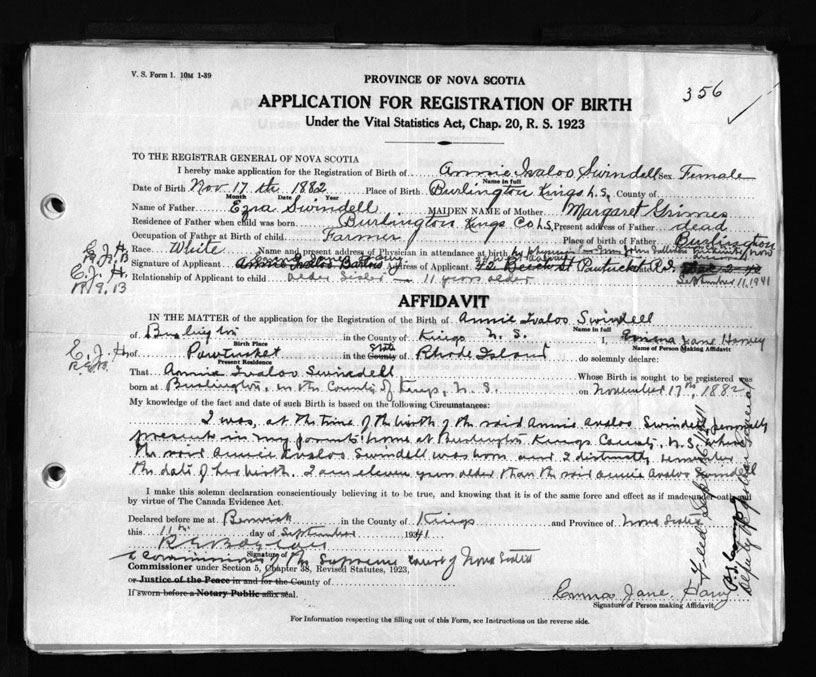 V. S. Form 1. 10M 1-39
356
PROVINCE OF NOVA SCOTIA
APPLICATION FOR REGISTRATION OF BIRTH
Under the Vital Statistics Act, Chap. 20, R. S. 1923
TO THE REGISTRAR GENERAL OF NOVA SCOTIA
I hereby make application for the Registration of Birth of Annie Ivaloo Swindell Sex Female
Name in full
Date of Birth Nov. 17th 1882 Place of Birth Burlington Kings N.S. County of
Month Date Year
Name of Father Ezra Swindell MAIDEN NAME of Mother Margaret Grimes
Residence of Father when child was born Burlington Kings Co N.S. Present address of Father dead
Occupation of Father at Birth of child Farmer Place of birth of Father Burlington
Race White Name and present address of Physician in attendance at birth
Signature of Applicant Annie Ivaloo Barlow Address of Applicant Pawtucket R.I.
September 11, 1941
Relationship of Applicant to child older sister — 11 years older
E. J. H.
E. J. H.
AFFIDAVIT
IN THE MATTER of the application for the Registration of the Birth of Annie Ivaloo Swindell
Name in full
of Burlington in the County of Kings N. S. I, Emma Jane Harvey
Birth Place Name of Person Making Affidavit
E. J. H.
of Pawtucket in the County State of Rhode Island do solemnly declare:
Present Residence
That Annie Ivaloo Swindell Whose Birth is sought to be registered was
born at Burlington, in the County of Kings, N. S. on November 17th, 1882
My knowledge of the fact and date of such Birth is based on the following Circumstances:
I was, at the time of the birth of the said Annie Avaloo Swindell, personally
present in my parents home at Burlington Kings County, N.S. where
the said Annie Avaloo Swindell was born and I distinctly remember
the date of her birth. I am eleven years older than the said Annie Avaloo Swindell
I make this solemn declaration conscientiously believing it to be true, and knowing that it is of the same force and effect as if made under oath and
by virtue of The Canada Evidence Act.
Declared before me at Berwick in the County of Kings and Province of Nova Scotia
this 11th day of September 1941
Signature of
a Commissioner of the Supreme Court of Nova Scotia
Commissioner under Section 5, Chapter 38, Revised Statutes, 1923,
or Justice of the Peace in and for the County of
If sworn before a Notary Public affix seal.
Emma Jane Harvey
Signature of Person making Affidavit
For Information respecting the filling out of this Form, see Instructions on the reverse side.
Deputy Registrar General